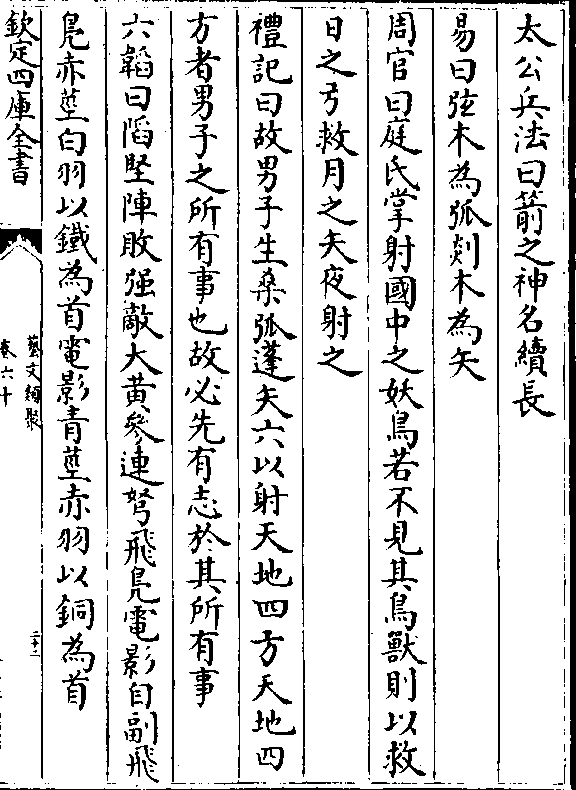 太公兵法曰箭之神名續長
易曰弦木為弧剡木為矢
周官曰庭氏掌射國中之妖鳥若不見其鳥獸則以救
日之弓救月之矢夜射之
禮記曰故男子生桑弧蓬矢六以射天地四方天地四
方者男子之所有事也故必先有志於其所有事
六韜曰陷堅陣敗强敵大黃參連弩飛鳬電影自副飛
鳬赤莖白羽以鐵為首電影青莖赤羽以銅為首
欽定四庫全書
藝文類聚
卷六十
二十二